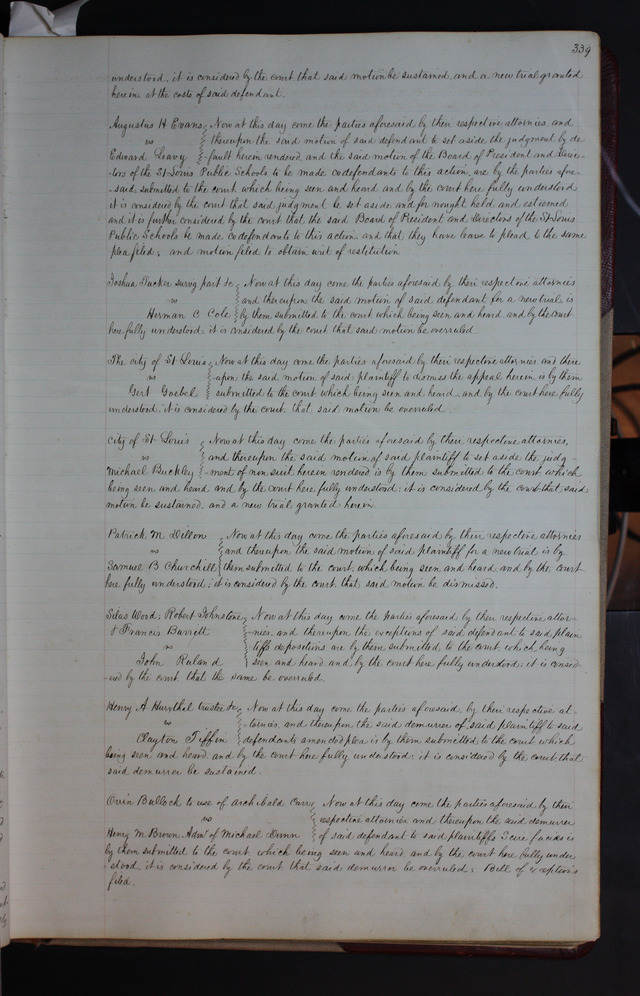 339
understood. it is considered by the court that said motion be sustained, and a new trial granted
herein at the costs of said defendant.
Augustus H Evans Now at this day come the parties aforesaid by their respective attornies, and
vs thereupon the said motion of said defendant to set aside the judgment by de
Edward Leavy fault herein rendered, and the said motion of the Board of President and Direc-
tors of the St Louis Public Schools to be made codefendants to this action, are by the parties afore-
said, submitted to the court which being seen and heard and by the court here fully understood
it is considered by the court that said judgment be set aside and for nought held and esteemed
and it is further considered by the court that the said Board of President and Directors of the St Louis
Public Schools be made codefendants to this action, and that they have leave to plead to the same
plea filed; and motion filed to obtain writ of restitution
Joshua Tucker survg part &c Now at this day come the parties aforesaid by their respective attornies
vs and thereupon the said motion of said defendant for a new trial is
Herman C Cole by them submitted to the court which being seen and heard and by the court
here fully understood: it is considered by the court that said motion be overruled
The city of St Louis Now at this day come the parties aforesaid by their respective attornies and there
vs -upon, the said motion of said plaintiff to dismiss the appeal herein is by them
Gert Goebel submitted to the court which being seen and heard, and by the court here fully
understood. it is considered by the court. that said motion be overruled.
City of St Louis Now at this day come the parties aforesaid by their respective attornies,
vs and thereupon the said motion of said plaintiff to set aside the judg-
Michael Buckley -ment of non suit herein rendered is by them submitted to the court which
being seen and heard and by the court here fully understood: it is considered by the court that said
motion be sustained, and a new trial granted herein
Patrick M Dillon Now at this day come the parties aforesaid by their respective attornies
vs and thereupon, the said motion of said plaintiff for a new trial is by
Samuel B Churchill them submitted to the court, which being seen and heard, and by the court
here fully understood: it is considered by the court. that said motion be dismissed.
Silas Wood, Robert Johnstone Now at this day come the parties aforesaid by their respective attor-
& Francis Barrett nies, and thereupon the exceptions of said defendant to said plain
vs tiffs depositions are by them submitted to the court, which being
John Ruland seen and heard and by the court here fully understood: it is consid-
ered by the court that the same be overruled.
Henry A Hurvthal trustee &c Now at this day come the parties aforesaid, by their respective at-
vs tornies, and thereupon the said demurrer of said plaintiff to said
Clayton Tiffin defendants amended plea is by them submitted to the court which
being seen and heard and by the court here fully understood: it is considered by the court that
said demurrer be sustained.
Orrin Bullock to use of Archibald Curry Now at this day come the parties aforesaid by their
vs respective attornies and thereupon the said demurrer
Henry M Brown Admr of Michael Dunn of said defendant to said plaintiffs Scire facias is
by them submitted to the court which being seen and heard and by the court here fully under
stood, it is considered by the court that said demurrer be overruled; Bill of exceptions
filed.